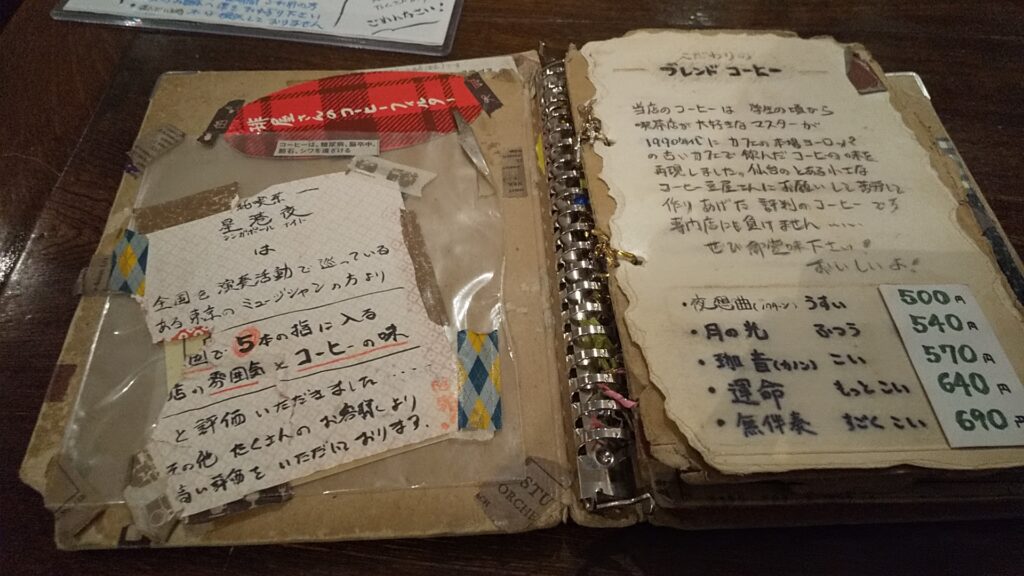 ごめんなさい!
珈屋さんのコーヒーフィルター
コーヒーは、糖尿病、脳卒中、
胆石、シワを遠ざける
純喫茶
星港夜
シンガポール ナイト
は
全国を演奏活動で巡っている
ある東京のミュージシャンの方より
国で5本の指に入る
店の雰囲気×コーヒーの味
と評価いただきました…
その他 たくさんのお客様より
高い評価をいただいております.
STU
ORCHE
こだわりの
ブレンド コーヒー
当店のコーヒーは 学生の頃から
喫茶店が大好きなマスターが
1990年代にカフェの本場ヨーロッパ
の古いカフェで飲んだコーヒーの味を
再現しました。仙台のとある小さな
コーヒー豆屋さんにお願いして
作りあげた 評判のコーヒーです
専門店にも負けません……
ぜひ御賞味下さい!
おいしいよ!
・夜想曲(ノクターン) うすい
・月の光 ふつう
・珈音(カノン) こい
・運命 もっとこい
・無伴奏 すごくこい
500円
540円
570円
640円
690円